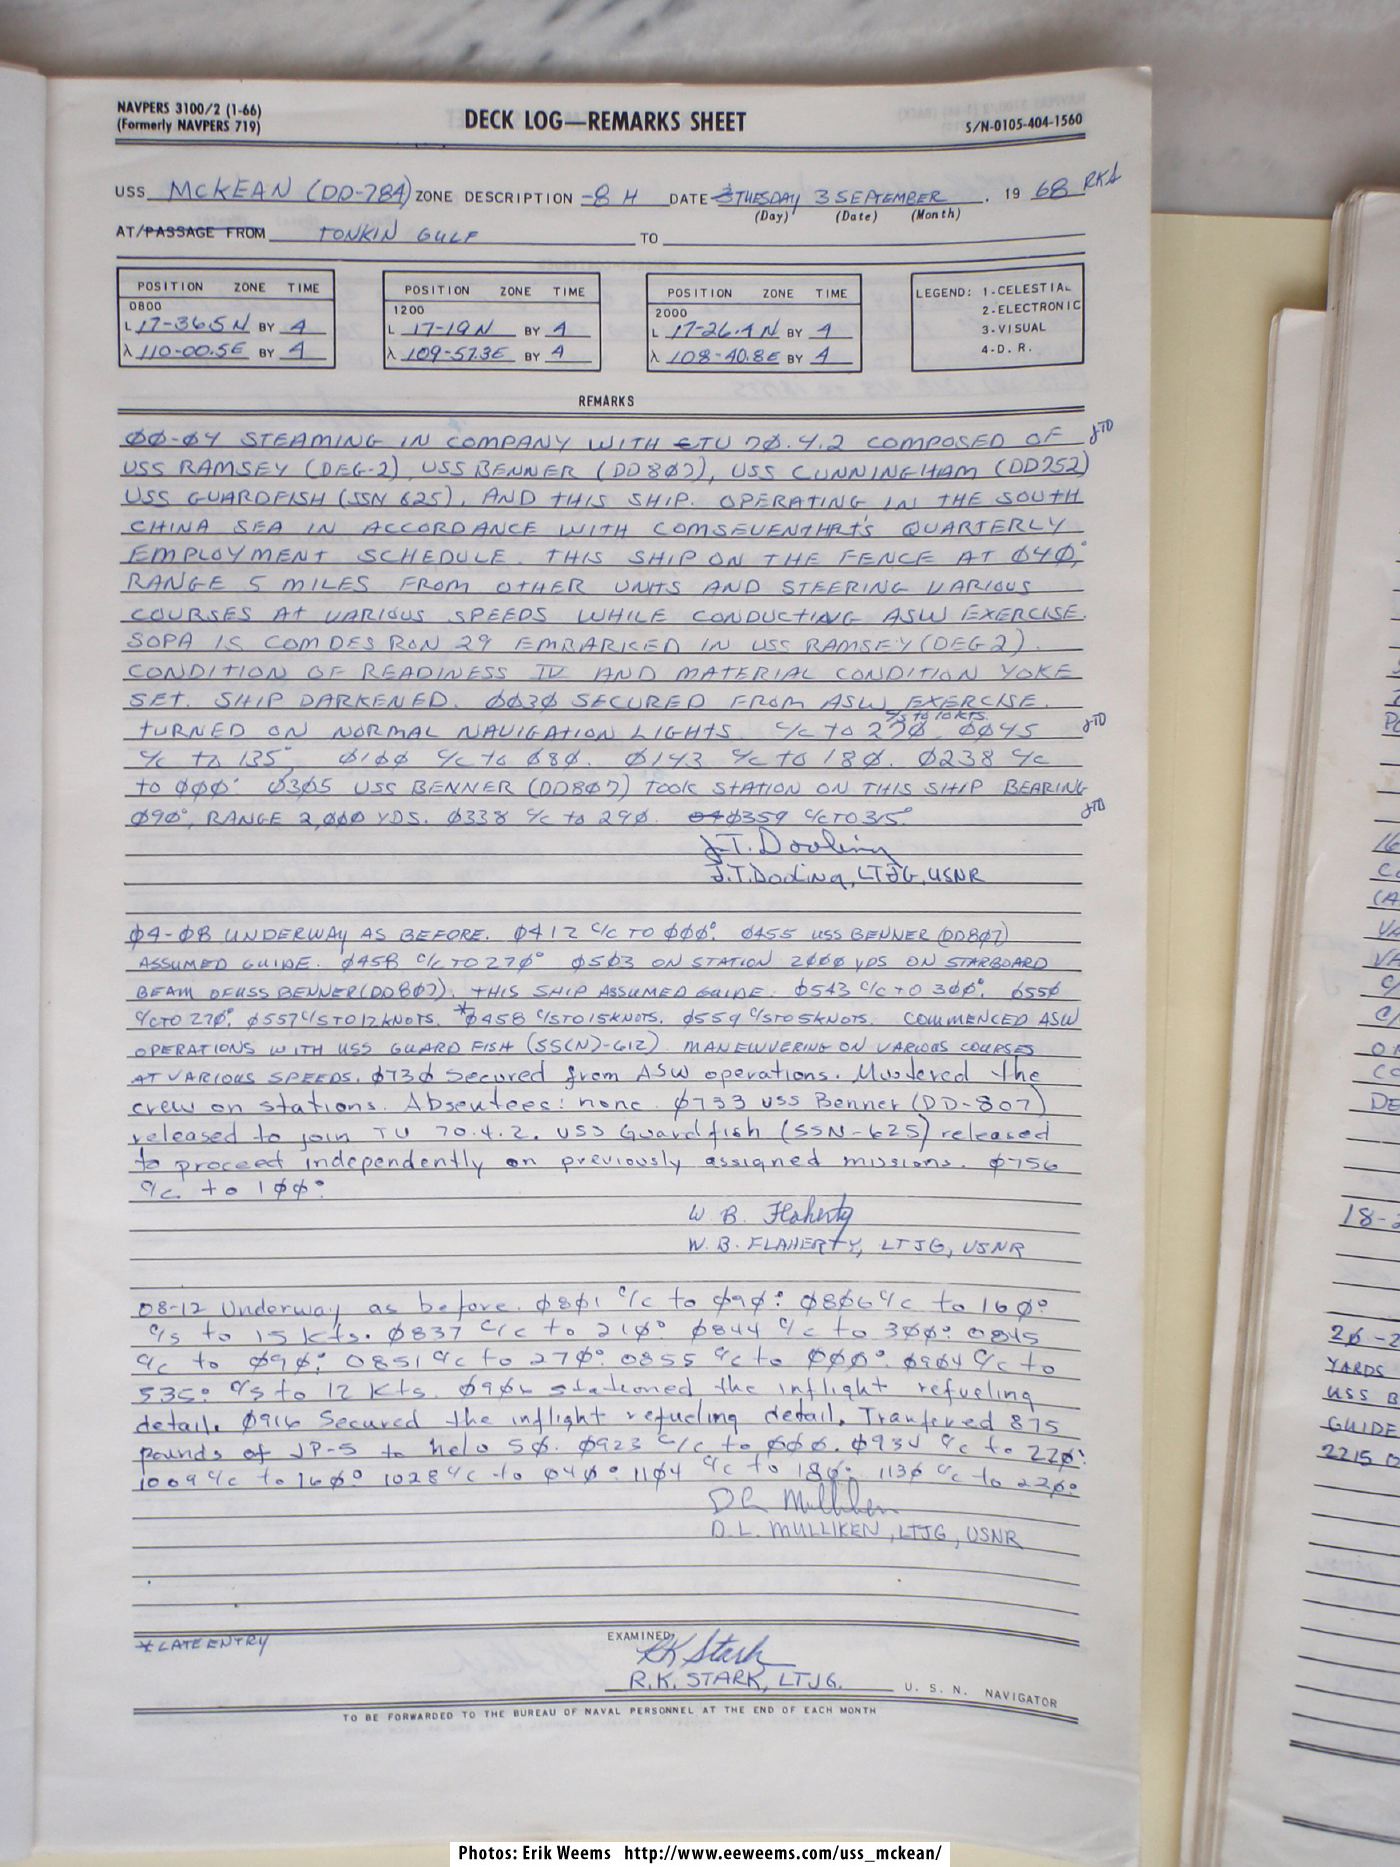 NAVPERS 3100/2 (1-66)
(Formerly NAVPERS 719)
DECK LOG—REMARKS SHEET
S/N-0105-404-1560
USS MCKEAN (DD-784) ZONE DESCRIPTION -8 H DATE TUESDAY 3 SEPTEMBER . 19 68 RKS
(Day) (Date) (Month)
AT/PASSAGE FROM TONKIN GULF TO
POSITION ZONE TIME
0800
L 17-36.5N BY 4
λ 110-00.5E BY 4
POSITION ZONE TIME
1200
L 17-19N BY 4
λ 109-57.3E BY 4
POSITION ZONE TIME
2000
L 17-26.4N BY 4
λ 108-40.8E BY 4
LEGEND: 1-CELESTIAL
2-ELECTRONIC
3-VISUAL
4-D. R.
REMARKS
00-04 STEAMING IN COMPANY WITH TU 70.4.2 COMPOSED OF JTD
USS RAMSEY (DEG-2), USS BENNER (DD807), USS CUNNINGHAM (DD752)
USS GUARDFISH (SSN 625), AND THIS SHIP. OPERATING IN THE SOUTH
CHINA SEA IN ACCORDANCE WITH COMSEVENTHFLT'S QUARTERLY
EMPLOYMENT SCHEDULE. THIS SHIP ON THE FENCE AT 040°,
RANGE 5 MILES FROM OTHER UNITS AND STEERING VARIOUS
COURSES AT VARIOUS SPEEDS WHILE CONDUCTING ASW EXERCISE.
SOPA IS COMDESRON 29 EMBARKED IN USS RAMSEY (DEG 2).
CONDITION OF READINESS IV AND MATERIAL CONDITION YOKE
SET. SHIP DARKENED. 0030 SECURED FROM ASW EXERCISE.
TURNED ON NORMAL NAVIGATION LIGHTS. C/C TO 270. C/S TO 10 KTS. 0045 JTD
C/C TO 135° 0100 C/C TO 080. 0143 C/C TO 180. 0238 C/C
TO 000° 0305 USS BENNER (DD807) TOOK STATION ON THIS SHIP BEARING
090°, RANGE 2,000 YDS. 0338 C/C TO 290. 0359 C/C TO 315° JTD
J.T. Dooling
J.T. Dooling, LTJG, USNR
04-08 UNDERWAY AS BEFORE. 0412 C/C TO 000°. 0455 USS BENNER (DD807)
ASSUMED GUIDE. 0458 C/C TO 270° 0503 ON STATION 2000 YDS ON STARBOARD
BEAM OF USS BENNER (DD807). THIS SHIP ASSUMED GUIDE. 0543 C/C TO 300°. 0550
C/C TO 270°. 0557 C/S TO 12 KNOTS. *0458 C/S TO 15 KNOTS. 0559 C/S TO 5 KNOTS. COMMENCED ASW
OPERATIONS WITH USS GUARD FISH (SS(N)-612). MANEUVERING ON VARIOUS COURSES
AT VARIOUS SPEEDS. 0730 Secured from ASW operations. Mustered the
crew on stations. Absentees: none. 0733 USS Benner (DD-807)
released to join TU 70.4.2. USS Guardfish (SSN-625) released
to proceed independently on previously assigned missions. 0756
C/C to 100°
W B Flaherty
W. B. FLAHERTY, LTJG, USNR
08-12 Underway as before. 0801 C/C to 090° 0806 C/C to 160°
C/S to 15 kts. 0837 C/C to 210° 0844 C/C to 300° 0845
C/C to 090° 0851 C/C to 270° 0855 C/C to 000° 0904 C/C to
535° C/S to 12 kts. 0906 stationed the inflight refueling
detail. 0916 Secured the inflight refueling detail. Tranfered 875
pounds of JP-5 to helo 50. 0923 C/C to 000. C/C to 220°
1009 C/C to 160° 1028 C/C to 040° 1104 C/C to 180° 1130 C/C to 220°
D L Mulliken
D. L. MULLIKEN, LTJG, USNR
* LATE ENTRY
EXAMINED
RK Stark
R.K. STARK, LTJG. U. S. N. NAVIGATOR
TO BE FORWARDED TO THE BUREAU OF NAVAL PERSONNEL AT THE END OF EACH MONTH
18-
20-2
YARDS
USS B
GUIDE
2215
Photos: Erik Weems http://www.eeweems.com/uss_mckean/